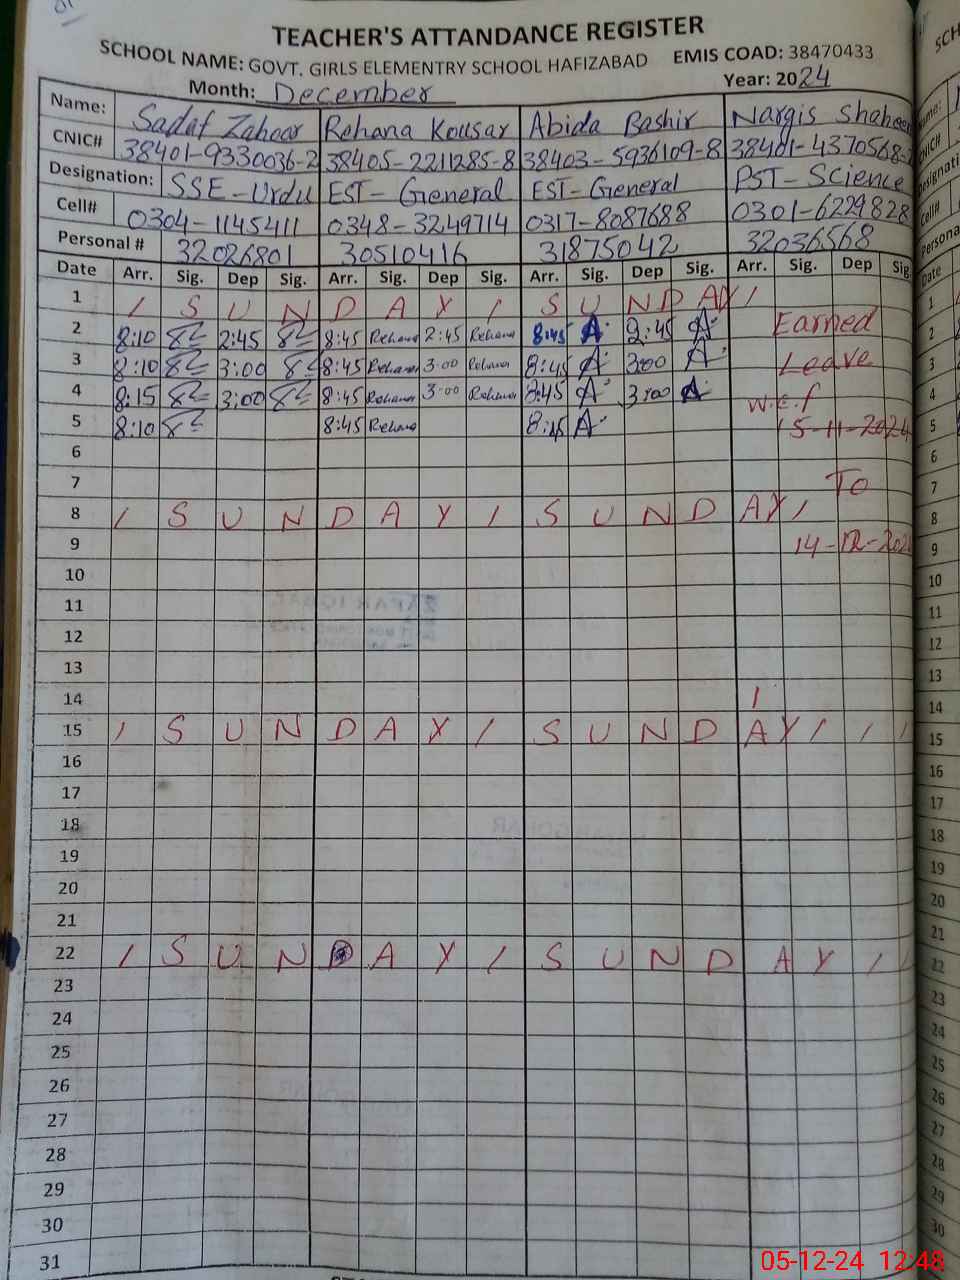 TEACHER'S ATTANDANCE REGISTER
SCHOOL NAME: GOVT. GIRLS ELEMENTRY SCHOOL HAFIZABAD EMIS COAD: 38470433
Month: December Year: 2024
Name: Sadaf Zaheer Rehana Kousar Abida Bashir Nargis Shaheen
CNIC# 38401-9330036-2 38405-2211285-8 38403-5936109-8 38401-4370568-
Designation: SSE-Urdu EST-General EST-General PST-Science
Cell# 0304-1145411 0348-3249714 0317-8087688 0301-6229828
Personal # 32026801 30510416 31875042 32036568
Date Arr. Sig. Dep Sig. Arr. Sig. Dep Sig. Arr. Sig. Dep Sig. Arr. Sig. Dep Sig
1 / S U N D A Y / S U N D A Y /
2 8:10 2:45 8:45 Rehana 2:45 Rehana 8:45 A 2:45 A Earned
3 8:10 3:00 8:45 Rehana 3:00 Rehana 8:45 A 3:00 A Leave
4 8:15 3:00 8:45 Rehana 3:00 Rehana 8:45 A 3:00 A w.e.f
5 8:10 8:45 Rehana 8:45 A 15-11-2024
6
7 To
8 / S U N D A Y / S U N D A Y /
9 14-12-202
10
11
12
13
14 /
15 / S U N D A Y / S U N D A Y / / /
16
17
18
19
20
21
22 / S U N D A Y / S U N D A Y / /
23
24
25
26
27
28
29
30
31
05-12-24 12:48